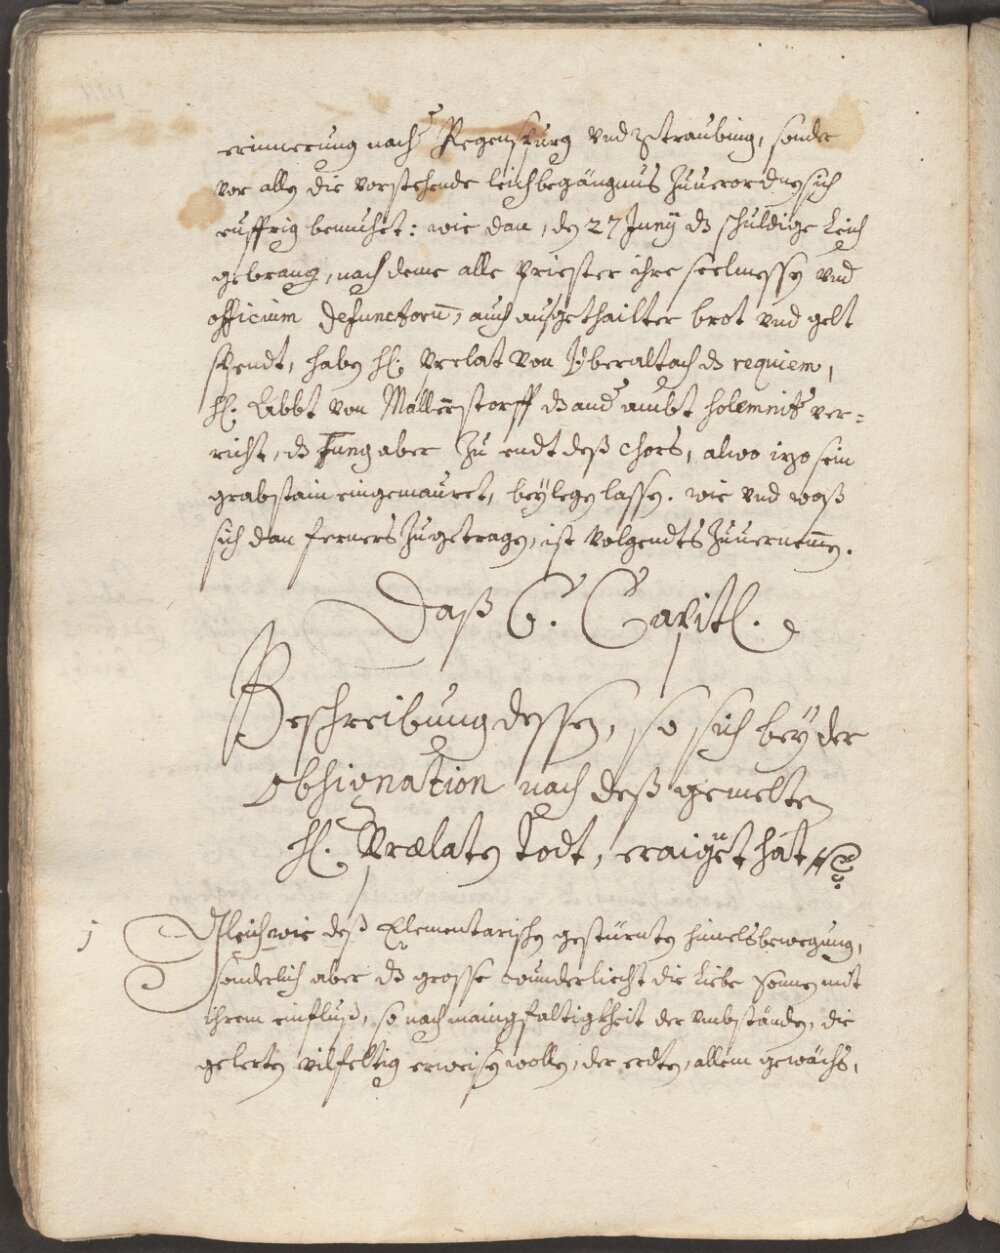 erinnerung nach Regenspurg vnd Straubing, sonder
vor allen die vorstehende leichbegängnus Zuuerordnen sich
euffrig bemuhet: wie dan, den 27 Junÿ dz schuldige Leich
gebrang, nach deme alle Priester ihre seelmessen vnd
officium defunctorū, auch ausgethailter brot vnd gelt
spendt, haben hl: Prelat von Oberaltach dz requiem,
hl: Abbt von Mallerstorff dz and ambt solemnitr ver=
richt, dz aber Zu endt deß Chors, alwo izo sein
grabstain eingemauret, beÿlegen lassen. wie vnd waß
sich dan ferners Zugetragen, ist volgendts Zuuernemen.
Daß 6. Capitl.
Beschreibung dessen, so sich beÿ der
obsignation nach deß gemelten
hl. Prælaten Todt, eraignet hat
1 Gleich wie deß Elementarischen gestürnten himelsbewegung,
sonderlich aber dz grosse wunderliecht die Liebe Sonnen mit
ihrem einfluß, so nach mainigfaltigkheit der vmbständen, die
gelerten vilfeltig erweisen wollen, der erdten, allem gewächs,